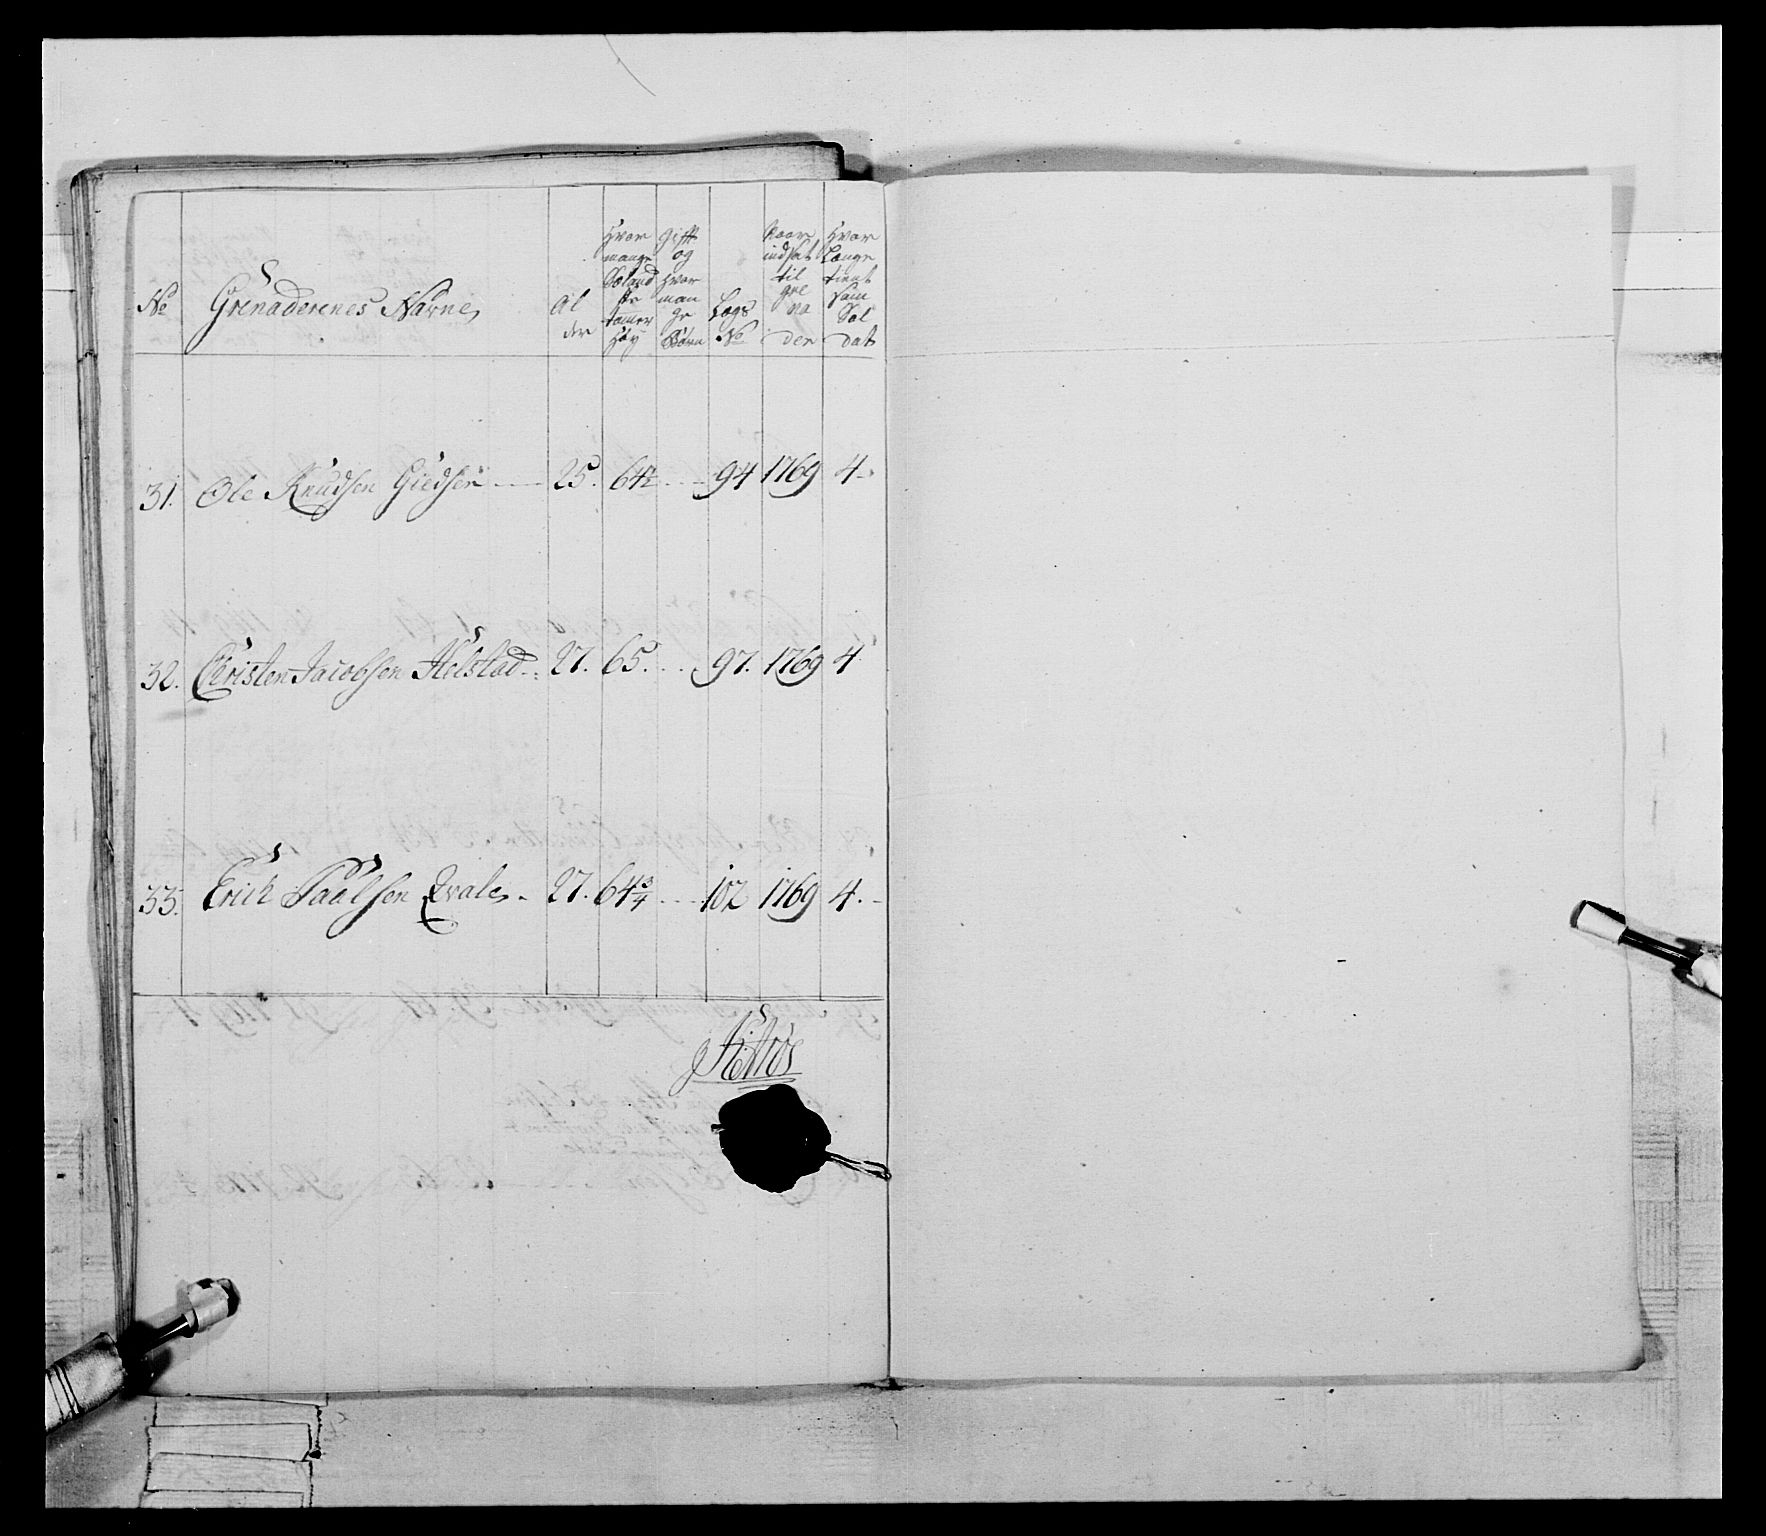 No Grenaderenes Navne, Al der Hvor mange Sælands ke tomer Høy Gift og Hvor man ge Børn Lægs No Naar indsat til gre na der Hvor Længe tient som Sol dat
31. Ole Knudsen Giedsen 25. 64½ 94 1769 4
32. Christen Jacobsen Helstad 27. 65. 97. 1769 4
33. Erick Paalsen Qvale 27. 64¾ 102 1769 4.